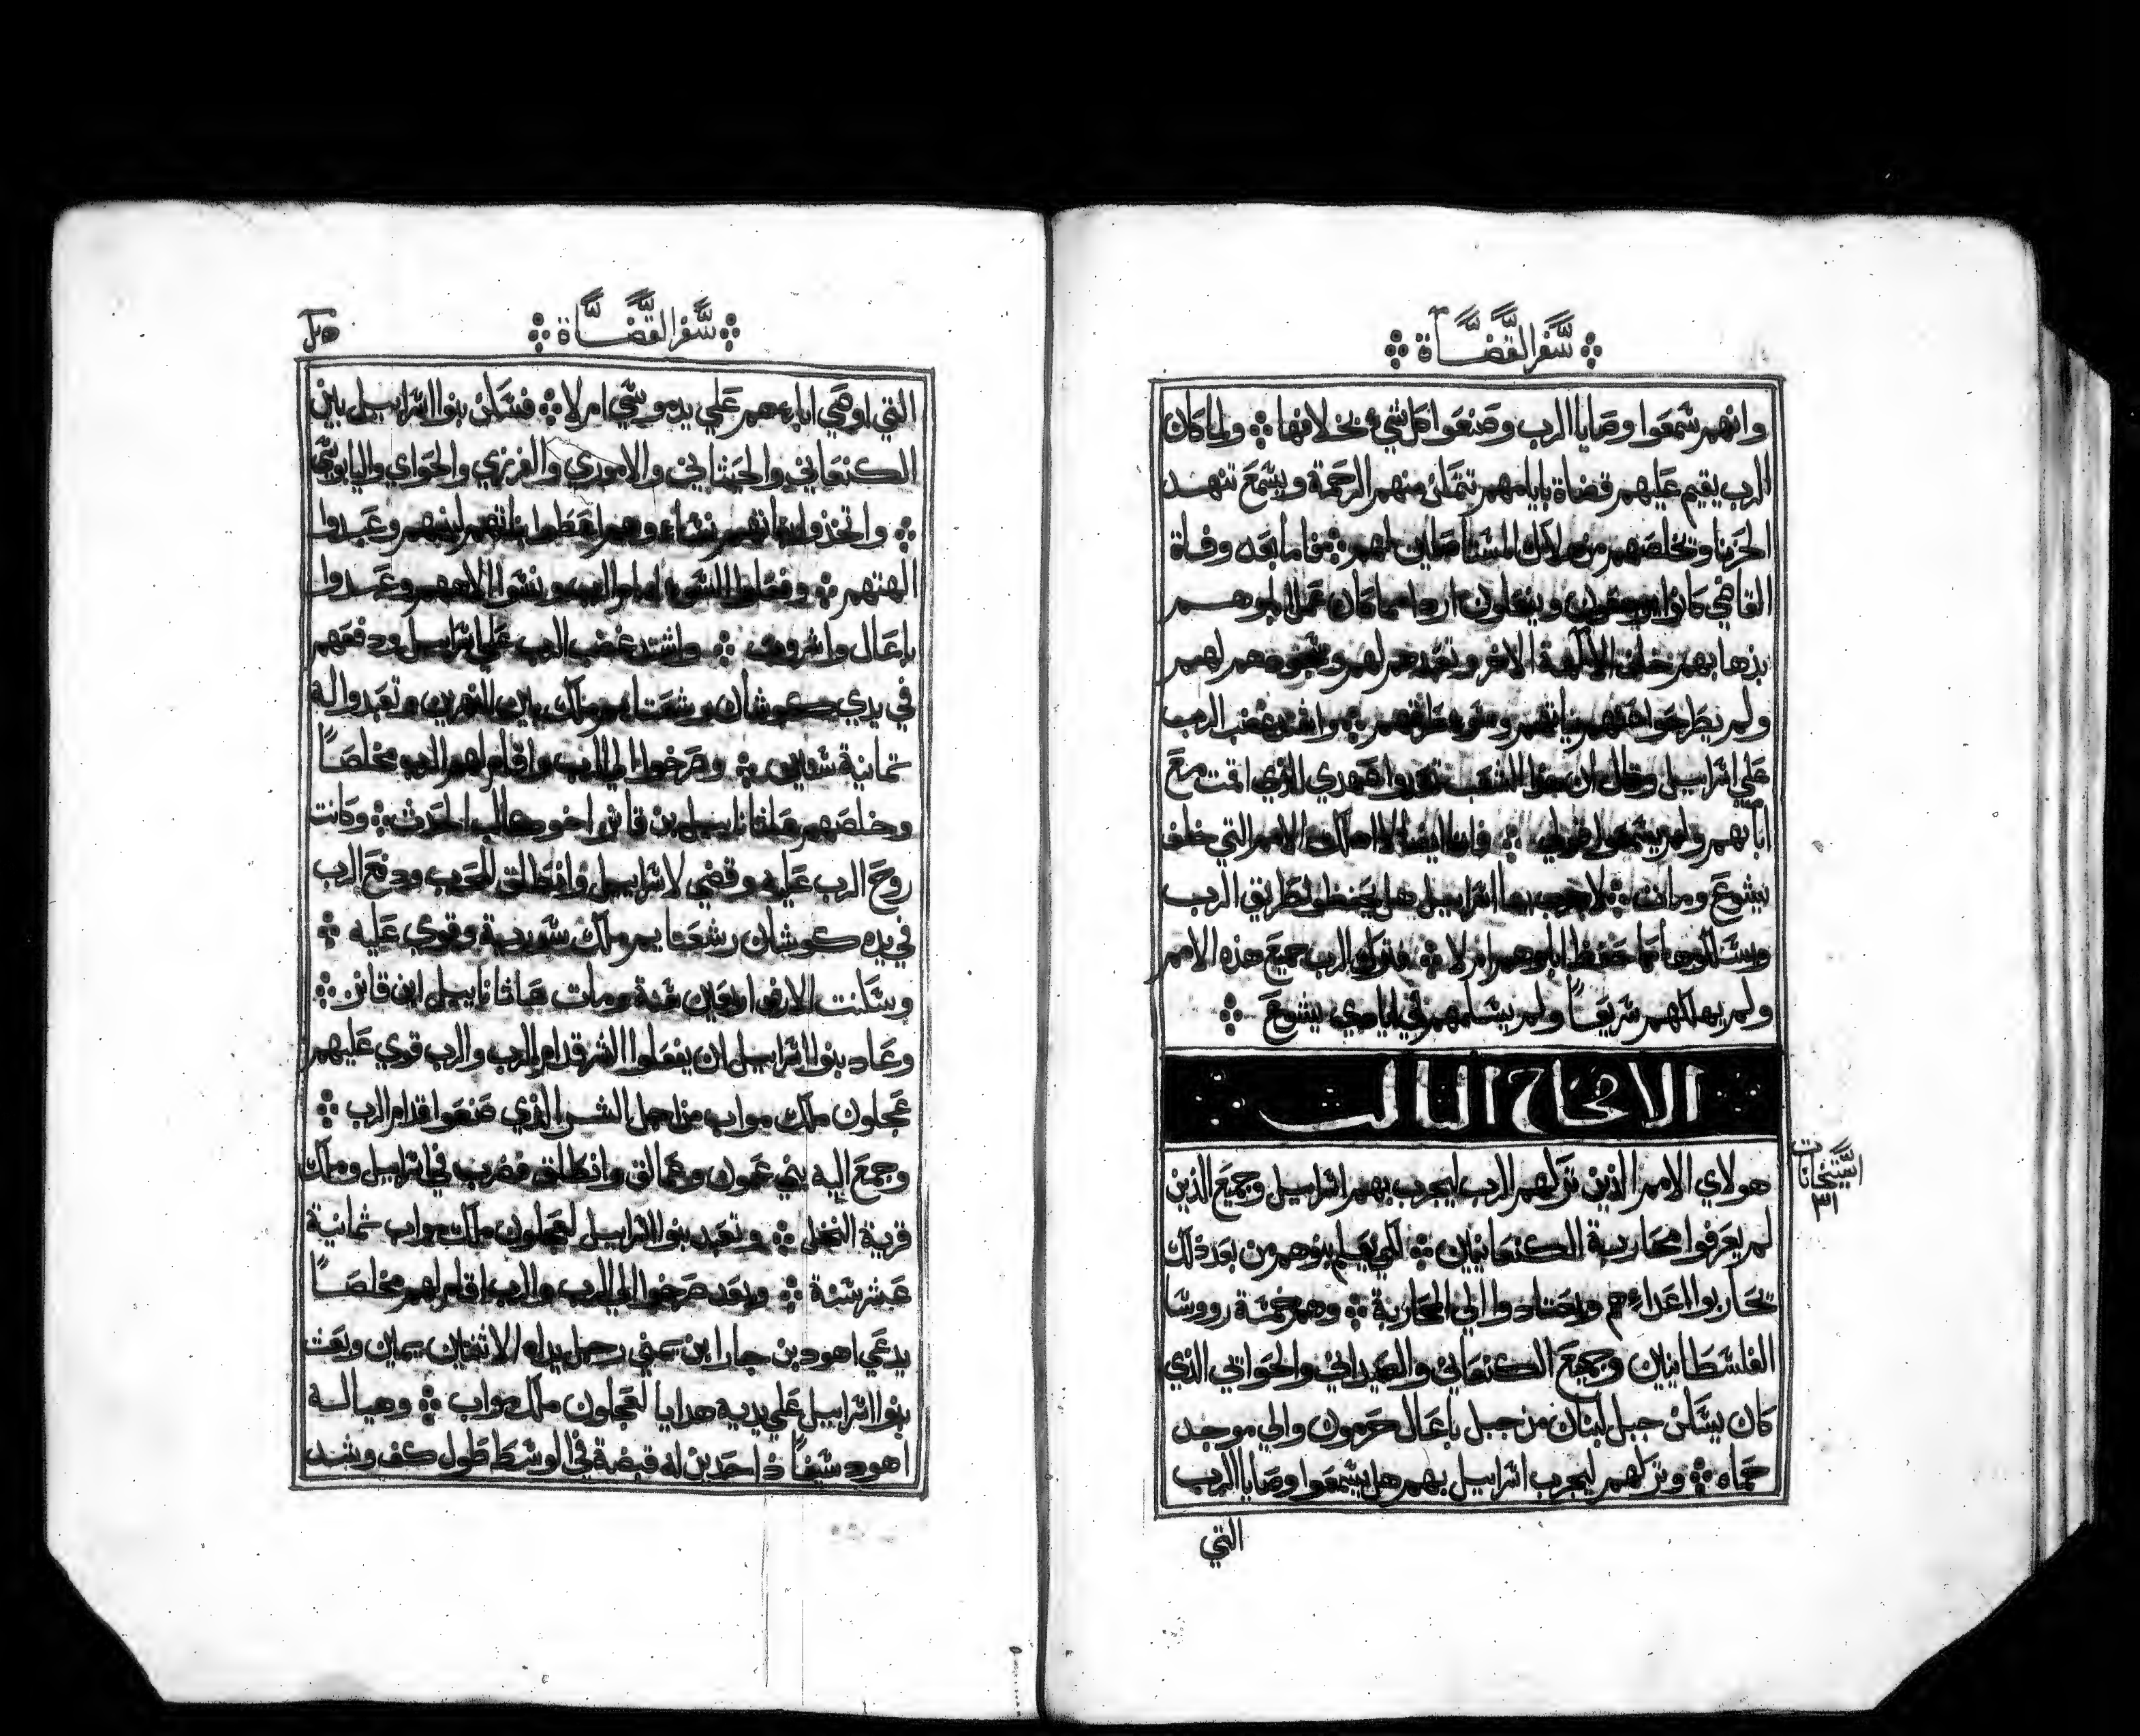 سفر القضاة
وانهم سمعوا وصايا الرب وصنعوا كل شيء بخلافها ولما كان
الرب يقيم عليهم قضاة بايامهم تتملن منهم الرحمة ويسمع تنهد
الحزينا وتخلصهم من هلاك المستأصلين لهم فاما بعد وفاة
القاضي كانوا يرجعون ويفعلون اردا مما كان عمل ابوهم
بذهابهم خلف الالهة الاخر وتعبدهم لهم وسجودهم لهم
ولم يطرحوا عنهم نياتهم وسو طرايقهم واشتد غضب الرب
علي اسراييل وقال ان هذا الشعب تعدوا عهدي الذي اقمت مع
ابايهم ولم يسمعوا قولي فانا ايضا لا اهلك الامم التي خلف
يشوع ومات لاجرب بها اسراييل هل يحفظوا طريق الرب
وسلكوها كما حفظ اباوهم ام لا فترك الرب جميع هذه الامم
ولم يهلكهم سريعاً ولم يسلمهم في ايادي يشوع
الاصحاح الثالث
هولاي الامم الذين تركهم الرب ليجرب بهم اسراييل وجميع الذين
استحانات
٣١
لم يعرفوا محاربة الكنعانيين لكي يعلم بنوهم من بعد ذلك
تحاربوا اعداءهم واعتادوا الي المحاربة وهم خمسة رووسا
الفلسطانيين وجميع الكنعاني والصيداني والحواني الذي
كان يسكن جبل لبنان من جبل باعال حرمون والي موجد
حماه وتركهم ليجرب اسراييل بهم هل يسمعوا وصايا الرب
التي
سفر القضاة
التي اوصي اباءهم علي يد موسي ام لا فسكن بنوا اسراييل بين
الكنعاني والحيثاني والاموري والفرزي والحواي واليابوسي
واتخذوا بناتهم نساء وهم اعطوا بناتهم لبنيهم وعبدوا
الهتهم وفعلوا السوء امام الرب ونسوا الاههم وعبدوا
باعال واشروف واشتد غضب الرب علي اسراييل ودفعهم
في يدي كوشان رشعتايم ملك بين النهرين وتعبدوا له
ثمانية سنين وصرخوا الي الرب واقام لهم الرب مخلصاً
وخلصهم عاثانايبل بن قانز اخو كالب الحدث وكانت
روح الرب عليه وقضي لاسراييل وانطلق للحرب ودفع الرب
في يده كوشان رشعتايم ملك سورية وقوي عليه
وسكنت الارض اربعين سنة ومات عاثانايبل ابن قانز
وعاد بنوا اسراييل ان يفعلوا الشر قدام الرب والرب قوي عليهم
عجلون ملك مواب من اجل الشر الذي صنعوا قدام الرب
وجمع اليه بني عمون وعمالق وانطلق فضرب في اسراييل وملك
قرية النخل وتعبد بنوا اسراييل لعجلون ملك مواب ثمانية
عشر سنة وبعد صرخوا الي الرب والرب اقام لهم مخلصاً
يدعي اهود بن جارا ابن يميني رجل يداه الاثنتين يمين وبعث
بنوا اسراييل علي يديه هدايا لعجلون ملك مواب وهيا له
اهود سيفاً ذا حدين له قبضة في الوسط طول كف وشد